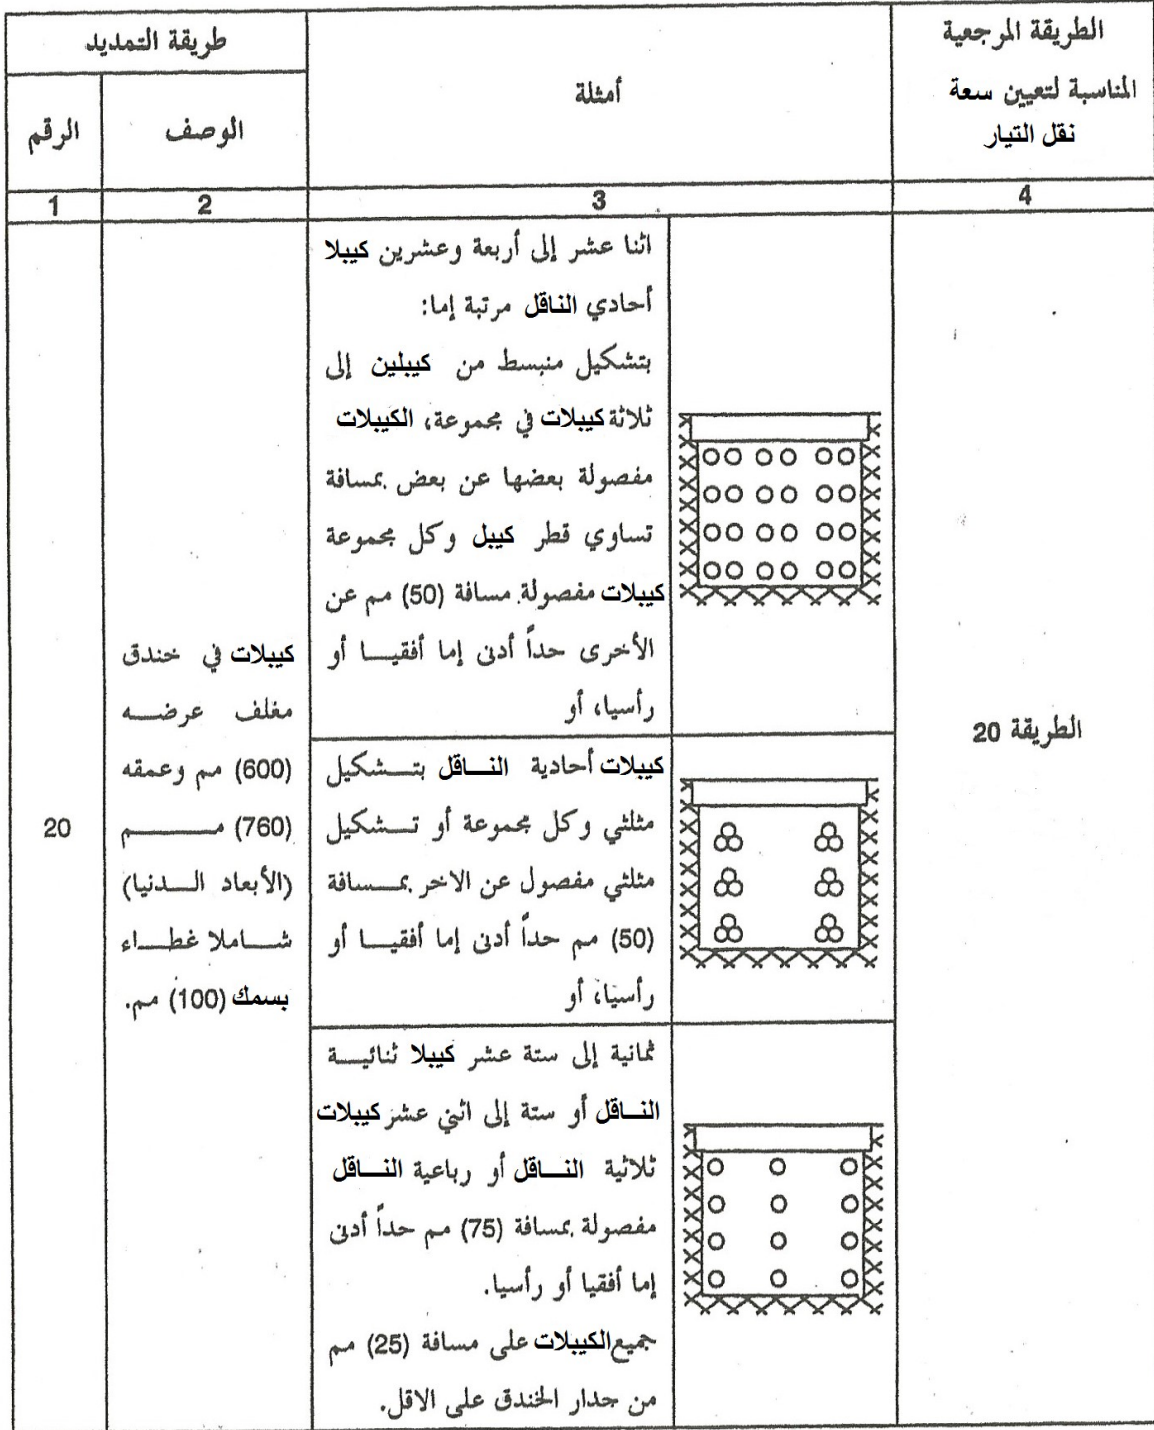 طريقة التمديد
أمثلة
الطريقة المرجعية
المناسبة لتعيين سعة
نقل التيار
الرقم
الوصف
1
2
3
4
20
كيبلات في خندق
مغلف عرضــه
(600) مم وعمقه
(760) مـــــــم
(الأبعاد الــدنيا)
شــاملا غطــاء
بسمك (100) مم.
اثنا عشر إلى أربعة وعشرين كيبلا
أحادي الناقل مرتبة إما:
بتشكيل منبسط من كيبلين إلى
ثلاثة كيبلات في مجموعة، الكيبلات
مفصولة بعضها عن بعض بمسافة
تساوي قطر كيبل وكل مجموعة
كيبلات مفصولة مسافة (50) مم عن
الأخرى حداً أدنى إما أفقيــا أو
رأسيا، أو
كيبلات أحادية النــاقل بتــشكيل
مثلثي وكل مجموعة أو تــشكيل
مثلثي مفصول عن الاخر بمــسافة
(50) مم حداً أدنى إما أفقيــا أو
رأسيا، أو
ثمانية إلى ستة عشر كيبلا ثنائيــة
النــاقل أو ستة إلى اثني عشر كيبلات
ثلاثية النــاقل أو رباعية النــاقل
مفصولة بمسافة (75) مم حداً أدنى
إما أفقيا أو رأسيا.
جميع الكيبلات على مسافة (25) مم
من جدار الخندق على الاقل.
الطريقة 20